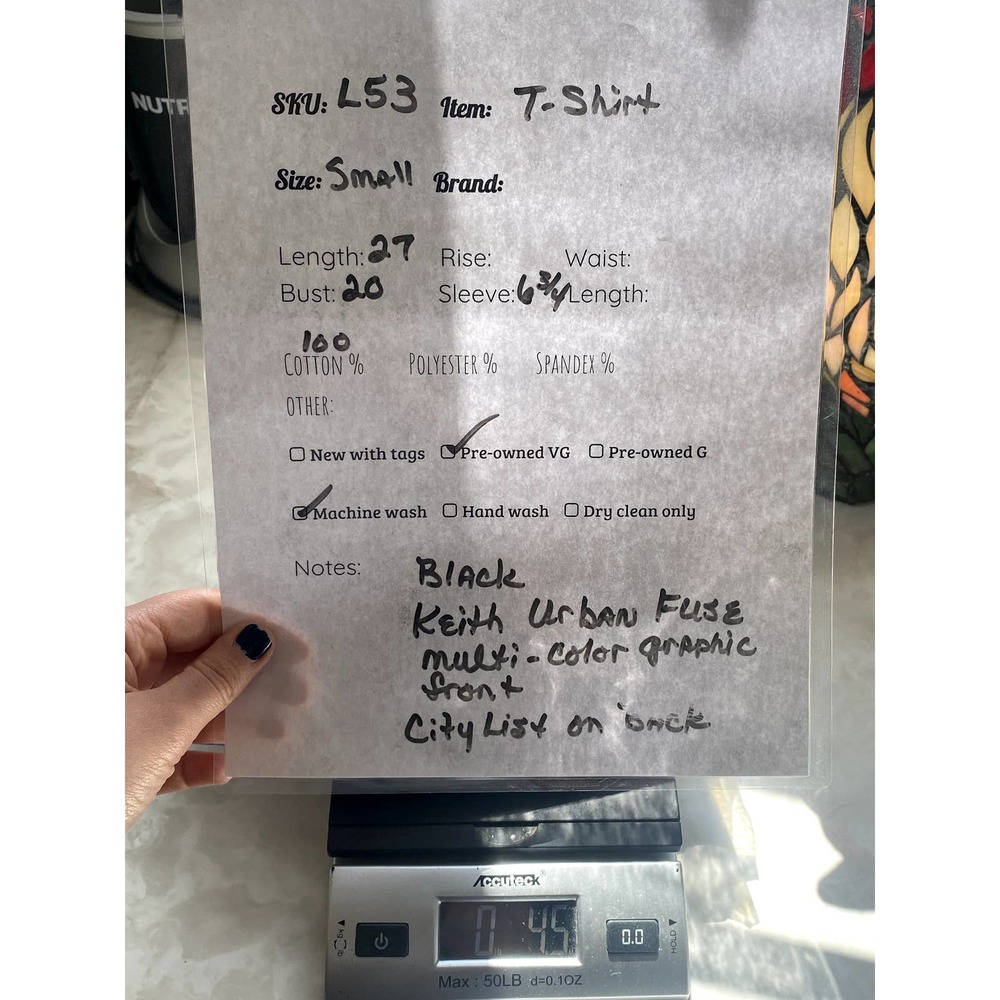 NUTR
SKU: L53 Item: T-Shirt
Size: Small Brand:
Length: 27 Rise: Waist:
Bust: 20 Sleeve: 6 3/4 Length:
100
COTTON % POLYESTER % SPANDEX %
OTHER:
New with tags Pre-owned VG Pre-owned G
Machine wash Hand wash Dry clean only
Notes: Black
Keith Urban Fuse
multi-color graphic
front
City List on back
Accuteck
kg lb 0 lb 4.5 0.0 HOLD
Max : 50LB d=0.1OZ